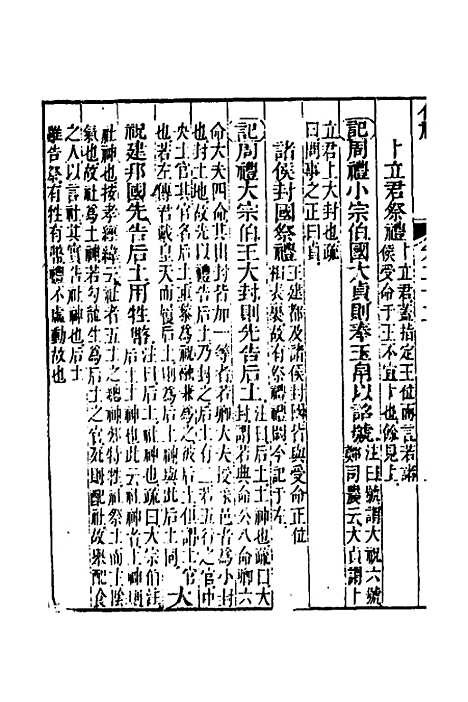 卜立君祭禮卜立君蓋指定王位而言若諸
侯受命于王不宜卜也餘見上
記周禮小宗伯國大貞則奉玉帛以詔號注曰號謂大祝六號
鄭司農云大貞謂卜
立君卜大封也疏
曰問事之正曰貞
諸侯封國祭禮王建都及諸侯封國皆與受命正位
相表裏故有祭禮闕今記于左
記周禮大宗伯王大封則先告后土注曰后土土神也疏曰大
封謂若典命公八命卿六
命大夫四命其出封皆加一等者若卿大夫授采邑者為小封
也封土地故先以禮告后土乃封之后土有二若五行之官中
央土官其官名后土重黎為祝融兼為之彼后土官
也若左傳君戴皇天而履后土則為后土神與此后土同大
祝建邦國先告后土用牲幣注曰后土社神也疏曰大宗伯注
后土土神也此云社神者土神則
社神也按孝經緯云社者五土之總神郊特牲社祭土而主陰
氣也故社為土神若句龍生為后土之官死則配社故舉配食
之人以言社其實告社神也后土
雖告祭有牲有幣禮不處動故也